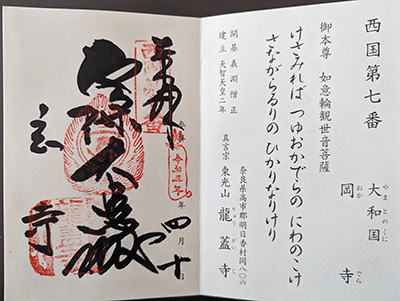 西国第七番
やまとのくに
大和国
おか でら
岡 寺
御本尊 如意輪観世音菩薩
けさみれば つゆおかでらの にわのこけ
さながらるりの ひかりなりけり
開基 義淵僧正
建立 天智天皇二年
奈良県高市郡明日香村岡八〇六
真言宗 東光山 龍蓋寺
りゅう がい じ
奉拝
年 四月十
寺